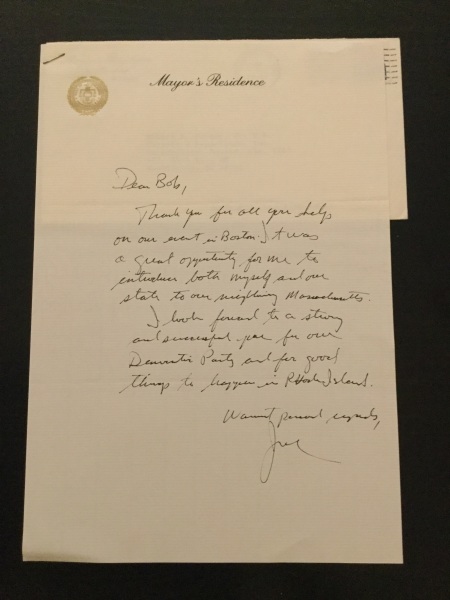 Mayor's Residence
Dear Bob,
Thank you for all your help
on our event in Boston. It was
a great opportunity for me to
introduce both myself and our
state to our neighboring Massachusetts.
I look forward to a strong
and successful year for our
Democratic Party and for good
things to happen in Rhode Island.
Warmest personal regards,